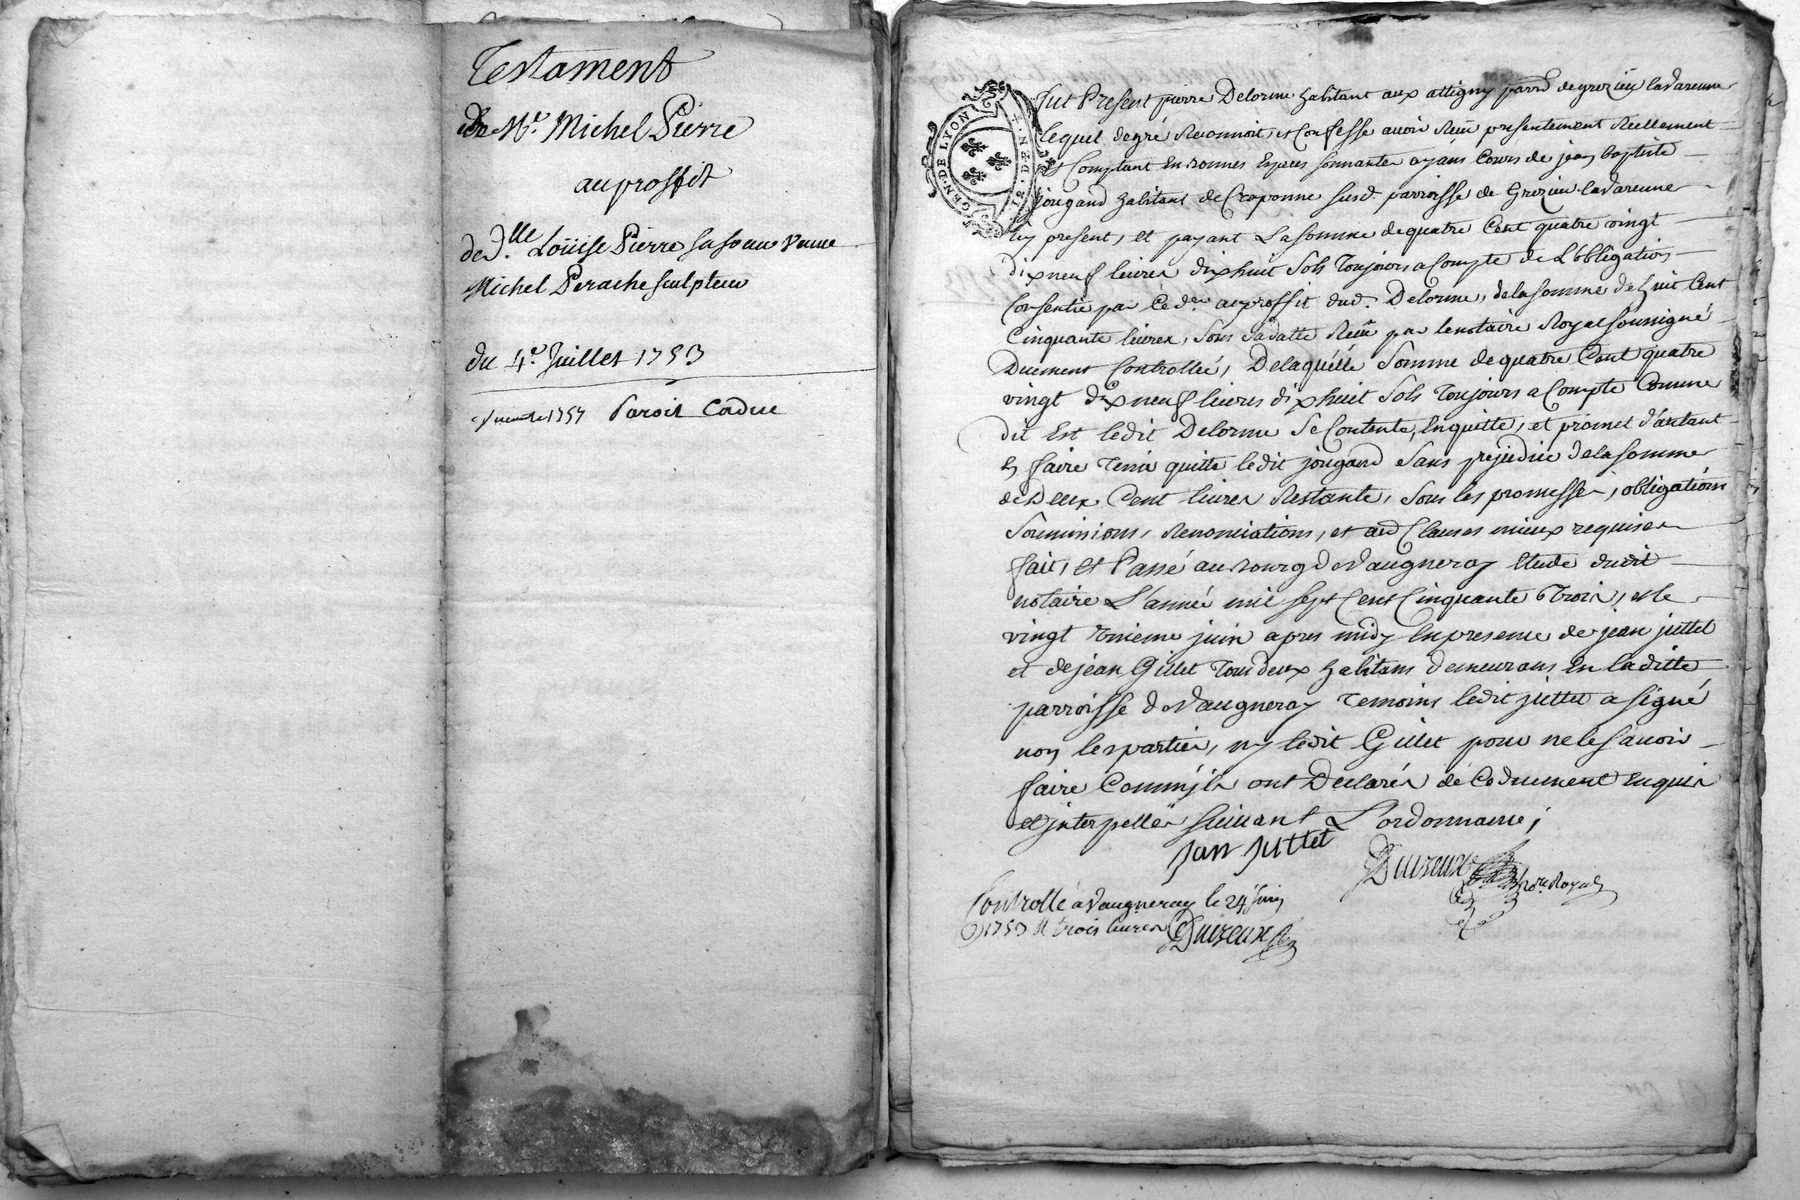 Testament
de Mr. Michel Pierre
au proffit
de d.lle Loüise Pierre sa soeur veuve
Michel Perache sculpteur
du 4e. Juillet 1753
1757 Paroit Caduc
GEN. DE LYON
Fut Present pierre Delorme habitant aux attigny parr. de grezieu lavarenne
lequel degré Reconnoit, et Confesse avoir Reçu presentement Reellement
et Comptant En bonnes Especes sonnantes ayans Cours de jean baptiste
jougand habitant de Craponne susd. parroisse de Grezieu lavarenne
icy present, et payant La somme de quatre Cent quatre vingt
dix neuf livres dix huit sols Toujours a Compte de L'obligation
Consentie par Ce der. au proffit dud. Delorme, de la somme de huit Cent
Cinquante livres, sous sa datte Reçue par le notaire Royal soussigné
Duement Controllée, De laquelle somme de quatre Cent quatre
vingt dix neuf livres dix huit sols Toujours a Compte Comme
dit Est ledit Delorme se Contente, En quitte, et promet d'autant
En faire Tenir quitte ledit jougand sans prejudice de la somme
de Deux Cent livres Restante, sous les promesses, obligations
soumissions, Renonciations, et aux Clauses mieux requises
fait, et Passé au bourg de Vaugneray Etude dudit
notaire L'année mil sept Cent Cinquante Trois, et le
vingt Troisieme juin apres midy En presence de jean juttet
et de jean Gillet Tous deux habitans demeurans En la ditte
parroisse de Vaugneray Temoins ledit juttet a signé
non les parties, ny ledit Gillet pour ne le savoir
faire Comme ils ont Declarés de Ce duement Enquis
et jnterpellés suivant L'ordonnance;
jan juttet
Duizeux no.re Royal
Controllé a Vaugneray le 24 juin
1753 R trois livres Duizeux